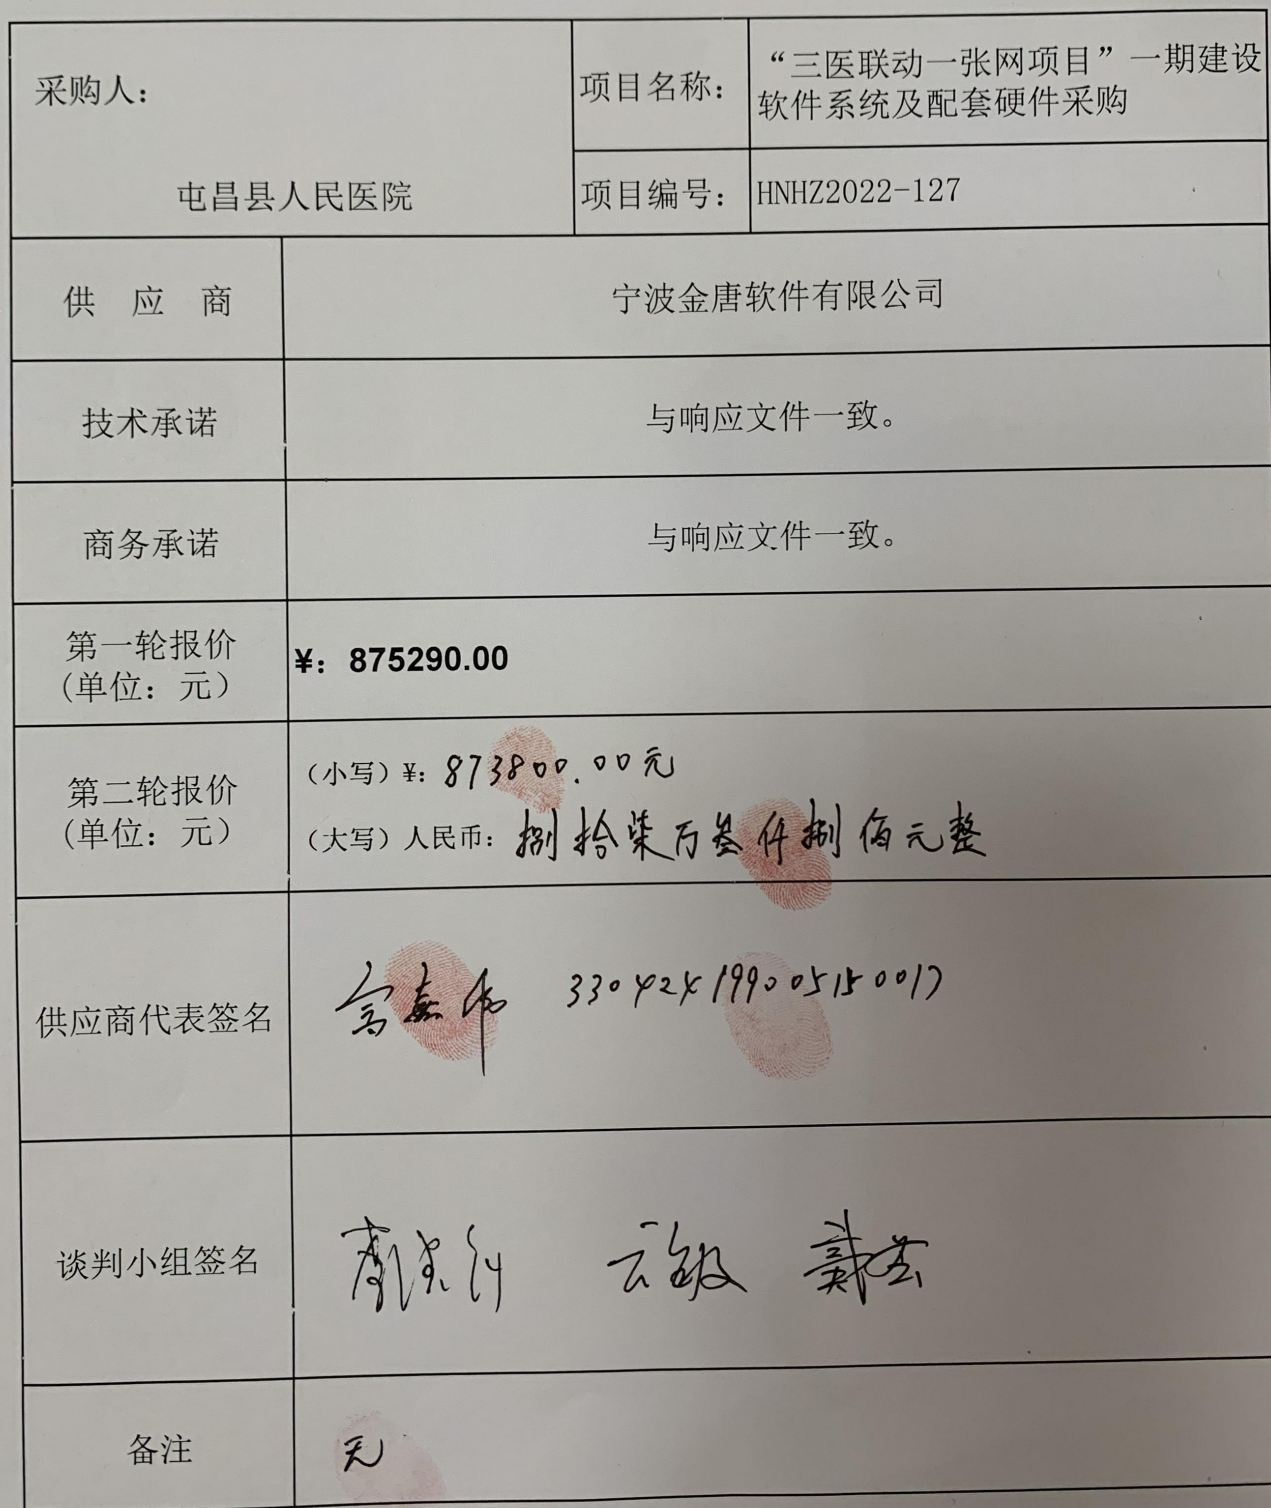 采购人：
屯昌县人民医院
项目名称：
“三医联动一张网项目”一期建设
软件系统及配套硬件采购
项目编号：
HNHZ2022-127
供 应 商
宁波金唐软件有限公司
技术承诺
与响应文件一致。
商务承诺
与响应文件一致。
第一轮报价
(单位：元）
¥：875290.00
第二轮报价
(单位：元）
（小写）¥：873800.00元
（大写）人民币：捌拾柒万叁仟捌佰元整
供应商代表签名
330424199005150017
谈判小组签名
备注
无